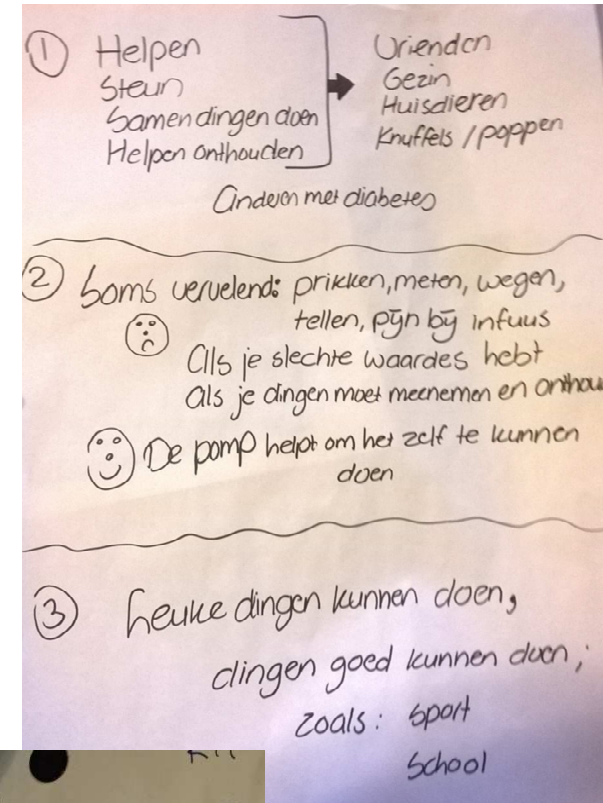 1 Helpen
Steun
Samen dingen doen
Helpen onthouden
Vrienden
Gezin
Huisdieren
Knuffels / poppen
Anderen met diabetes
2 Soms vervelend: prikken, meten, wegen,
tellen, pijn bij infuus
Als je slechte waardes hebt
als je dingen moet meenemen en onthou
De pomp helpt om het zelf te kunnen
doen
3 Leuke dingen kunnen doen,
dingen goed kunnen doen,
zoals: sport
School